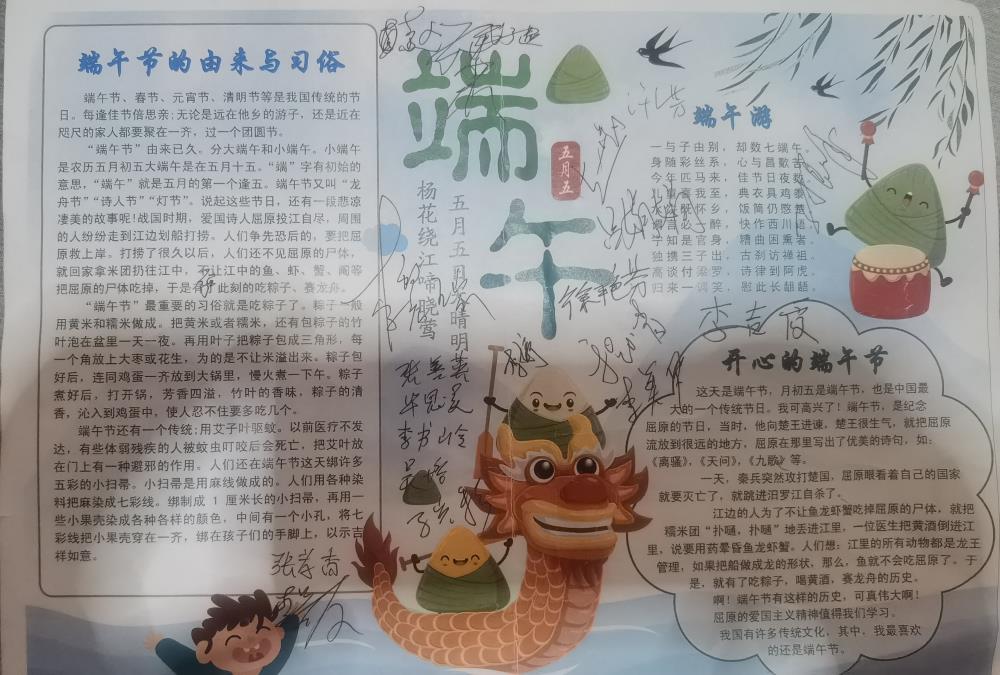 端午节的由来与习俗
端午节、春节、元宵节、清明节等是我国传统的节
日。每逢佳节倍思亲;无论是远在他乡的游子，还是近在
咫尺的家人都要聚在一齐，过一个团圆节。
“端午节”由来已久。分大端午和小端午。小端午
是农历五月初五大端午是在五月十五。“端”字有初始的
意思，“端午”就是五月的第一个逢五。端午节又叫“龙
舟节”“诗人节”“灯节”。说起这些节日，还有一段悲凉
凄美的故事呢!战国时期，爱国诗人屈原投江自尽，周围
的人纷纷走到江边划船打捞。人们争先恐后的，要把屈
原救上岸。打捞了很久以后，人们还不见屈原的尸体，
就回家拿米团扔往江中，让江中的鱼、虾、蟹、阁等
把屈原的尸体吃掉，于是 此刻的吃粽子、赛龙舟。
“端午节”最重要的习俗就是吃粽子了。粽子一般
用黄米和糯米做成。把黄米或者糯米，还有包粽子的竹
叶泡在盆里一天一夜。再用叶子把粽子包成三角形，每
一个角放上大枣或花生，为的是不让米溢出来。粽子包
好后，连同鸡蛋一齐放到大锅里，慢火煮一下午。粽子
煮好后，打开锅，芳香四溢，竹叶的香味，粽子的清
香，沁入到鸡蛋中，使人忍不住要多吃几个。
端午节还有一个传统:用艾子叶驱蚊。以前医疗不发
达，有些体弱残疾的人被蚊虫叮咬后会死亡，把艾叶放
在门上有一种避邪的作用。人们还在端午节这天绑许多
五彩的小扫帚。小扫帚是用麻线做成的。人们用各种染
料把麻染成七彩线。绑制成 1 厘米长的小扫帚，再用一
些小果壳染成各种各样的颜色，中间有一个小孔，将七
彩线把小果壳穿在一齐，绑在孩子们的手脚上，以示吉
祥如意。
端午
五月五
五月五日 晴明
杨花绕江啼晓莺
李书岭
李吉霞
端午游
一与子由别，却数七端午。
身随彩丝系，心与昌歜苦。
今年匹马来，佳节日夜数。
儿童喜我至，典衣具鸡黍。
水 怀乡，饭筒仍愍楚。
谓言必 醉，快作西川语。
宁知是官身，糟曲困熏煮。
独携三子出，古刹访禅祖。
高谈付梁罗，诗律到阿虎。
归来一调笑，慰此长龃龉。
开心的端午节
这天是端午节，月初五是端午节，也是中国最
大的一个传统节日。我可高兴了！端午节，是纪念
屈原的节日，当时，他向楚王进谏，楚王很生气，就把屈原
流放到很远的地方，屈原在那里写出了优美的诗句，如:
《离骚》，《天问》，《九歌》等。
一天，秦兵突然攻打楚国，屈原眼看着自己的国家
就要灭亡了，就跳进汨罗江自杀了。
江边的人为了不让鱼龙虾蟹吃掉屈原的尸体，就把
糯米团“扑嗵，扑嗵”地丢进江里，一位医生把黄酒倒进江
里，说要用药晕昏鱼龙虾蟹。人们想：江里的所有动物都是龙王
管理，如果把船做成龙的形状，那么，鱼就不会吃屈原了。于
是，就有了吃粽子，喝黄酒，赛龙舟的历史。
啊！端午节有这样的历史，可真伟大啊！
屈原的爱国主义精神值得我们学习。
我国有许多传统文化，其中，我最喜欢
的还是端午节。